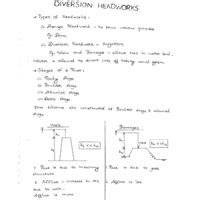 DIVERSION HEADWORKS
→ Types of Headworks :-
i) Storage Headwork - to serve various purpose
Eg: Dam.
ii) Diversion Headwork - Irrigation
Eg: Weirs and Barrages - allows rise in water level.
Water is allowed to divert into off taking canal
→ Stages of a River :-
i) Rocky stage
ii) Boulder stage
iii) Alluvial stage
iv) Delta stage
are constructed at Boulder stage & alluvial stage
Weir
Barrages
1. Rise is due to masonry structure
1. Rise is due to gate
2. Afflux - increase in
due to weir.
Afflux is more
2. Afflux is less